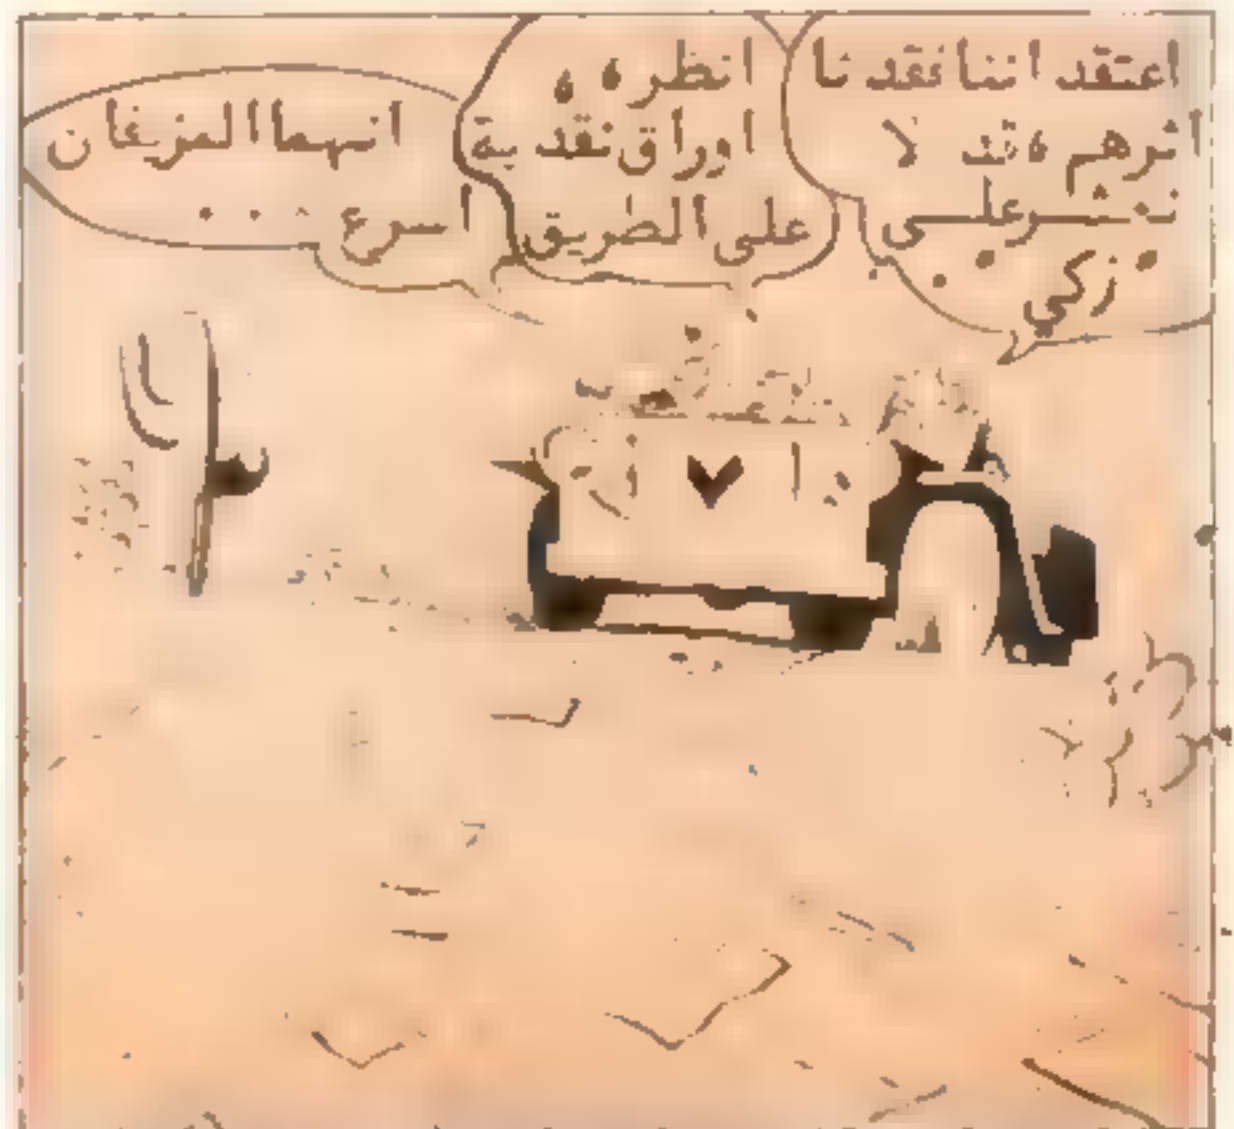 اعتقد اننا فقد نا
اثرهم ، قد لا
نعثر على
زكي . . .
انظر ، ،
اوراق نقد ية
على الطريق
انهما المزيفان
اسرع . . .